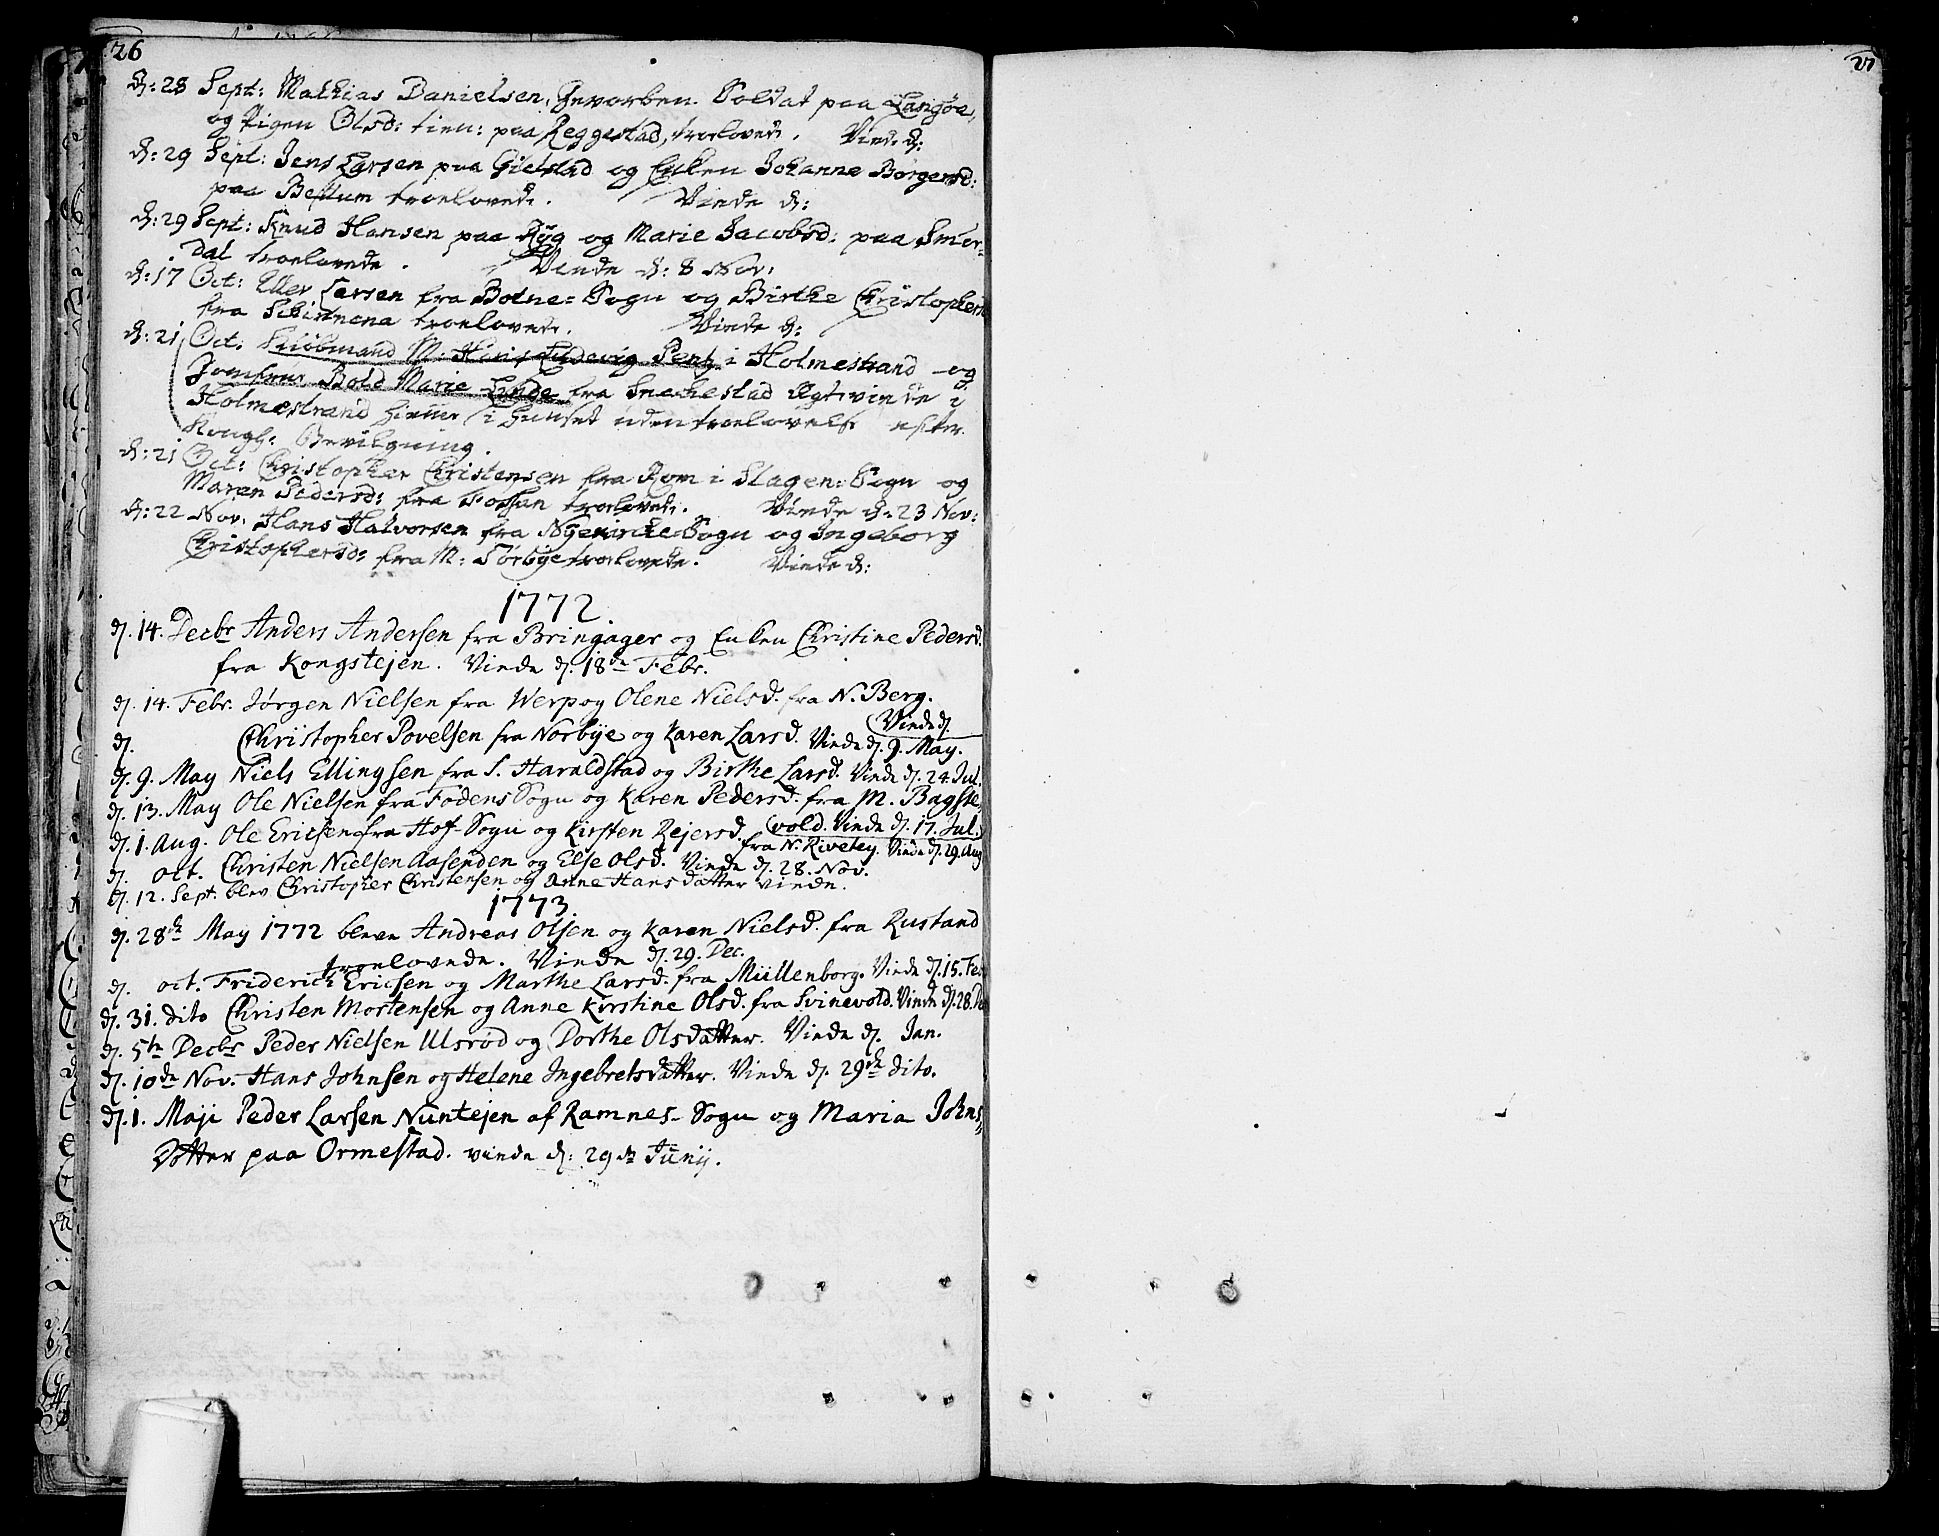 26
d: 28 Sept: Mathias Danielsen, Gevorben Soldat paa Langøe,
og Pigen Olsd: tien: paa Reggestad, troelovede. Viede d:
d: 29 Sept: Jens Larsen paa Gielstad og Enken Johanne Børgersd:
paa troelovede. Viede d:
d: 29 Sept: Knud Hansen paa Ryg og Marie Jacobsd: paa Smør-
dal troelovede. Viede d: 8 Nov:
d: 17 Oct: Eller Larsen fra Botne-Sogn og Birthe Christophers
fra troelovede. Viede d:
d: 21 Oct. Kiøbmand M: Hans Ludevig Pentz i Holmestrand og
Jomfrue Bold Marie Lunde fra Snekestad Ægtviede i
Holmestrand hiemme i Huuset uden troelovelse efter
Kongl: Bevilgning.
d: 21 Oct: Christopher Christensen fra Rom i Slagen-Sogn og
Maren Pedersd: fra Fossan troelovede. Viede d: 23 Nov:
d: 22 Nov. Hans Halvorsen fra Nyekirke Sogn og Ingeborg
Christophersd: fra M: Sørbye troelovede. Viede d:
1772.
d. 14. Decbr Anders Andersen fra Bringager og Enken Christine Pedersd.
fra Kongstejen. Viede d. 18de Febr.
d. 14. Febr. Jørgen Nielsen fra Werp og Olene Nielsd. fra N. Berg.
(Viede d.
d. Christopher Povelsen fra Norbye og Karen Larsd. Viede d. 9. May.
d. 9. May Niels Ellingsen fra S. Haraldstad og Birthe Larsd. Viede d. 24. Jul.
d. 13. May Ole Nielsen fra Fodens Sogn og Karen Pedersd. fra M. Bagste,
(vold. Viede d. 17. Jul.)
d. 1. Aug. Ole Ericsen fra Hof-Sogn og Kirsten Rejersd.
fra N. Rivetey. Viede d. 29. Aug
d. Oct. Christen Nielsen Aasenden og Else Olsd. Viede d. 28. Nov.
d. 12. Sept. blev Christopher Christensen og Anne Hansdatter viede.
1773.
d. 28de May 1772 bleve Andreas Olsen og Karen Nielsd. fra Rustand
troelovede. Viede d. 29. Dec.
d. Oct. Friderich Ericsen og Marthe Larsd. fra Müllenborg. Viede d. 15. Feb
d. 31. dito Christen Mortensen og Anne Kirstine Olsd. fra Svinevold. Viede d. 28. De
d. 5te Decbr Peder Nielsen Ulsrød og Dorthe Olsdatter. Viede d. Jan.
d. 10de Nov. Hans Johnsen og Helene Ingebretsdatter. Viede d. 29de dito.
d. 1. Maji Peder Larsen Nuntejen af Ramnes-Sogn og Maria Johns
datter paa Ormestad. viede d: 29de Junij.
27